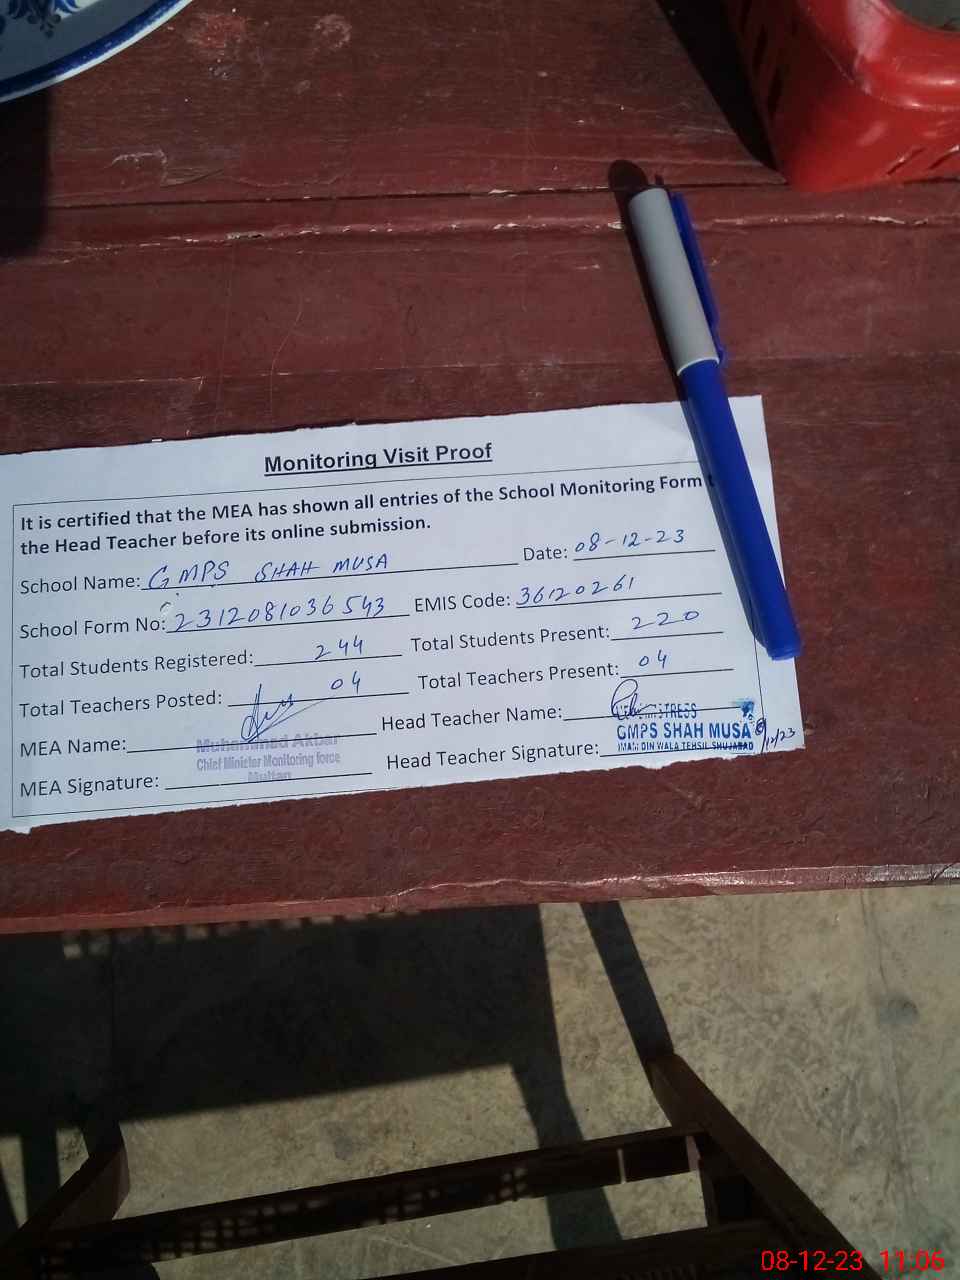 Monitoring Visit Proof
It is certified that the MEA has shown all entries of the School Monitoring Form
the Head Teacher before its online submission.
School Name: GMPS SHAH MUSA Date: 08-12-23
School Form No: 2312081036543 EMIS Code: 36120261
Total Students Registered: 244 Total Students Present: 220
Total Teachers Posted: 04 Total Teachers Present: 04
MEA Name: Head Teacher Name:
Muhammad Akbar
Chief Minister Monitoring force
Multan
GMPS SHAH MUSA
DIN WALA TEHSIL SHUJABAD
8/12/23
MEA Signature: Head Teacher Signature:
08-12-23 11:06